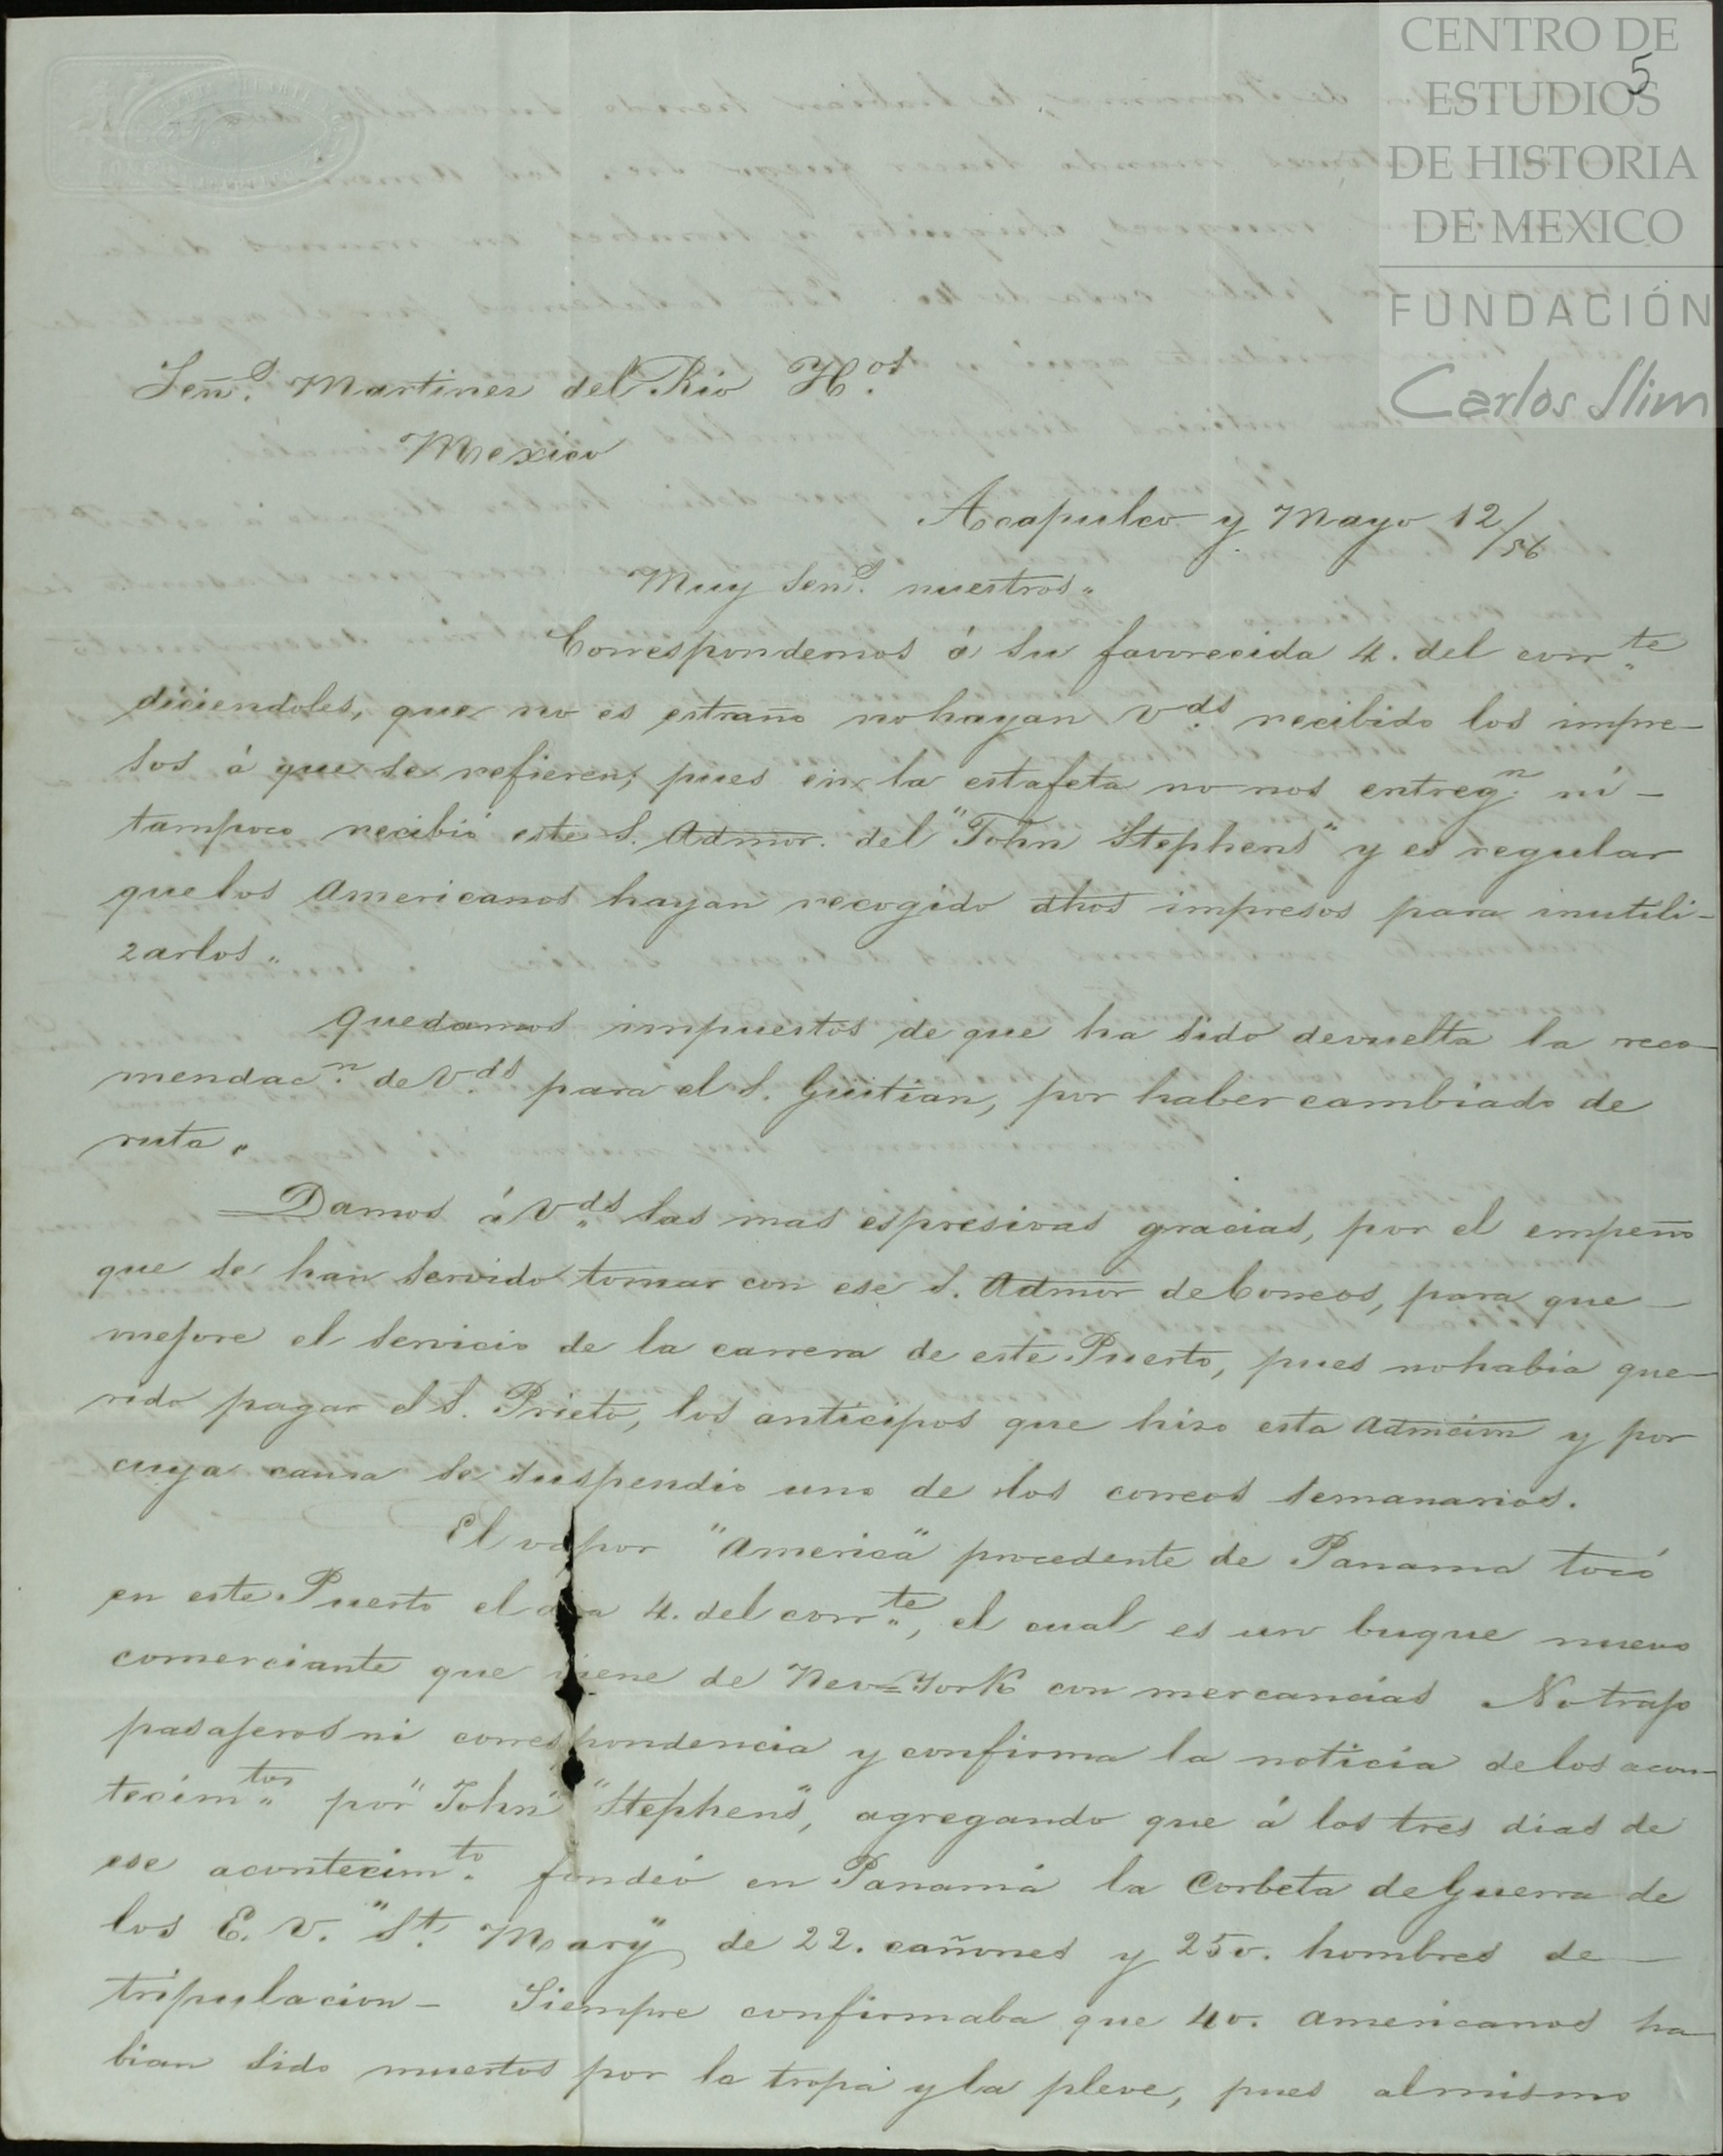 CENTRO DE
ESTUDIOS
DE HISTORIA
DE MEXICO
FUNDACIÓN
Carlos Slim
5
Señ.s Martinez del Rio H.os
Mexico
Acapulco y Mayo 12/56
Muy Señ.s nuestros.,
Correspondemos á su favorecida 4. del corr.te
diciendoles, que no es estraño no hayan V.ds recibido los impre-
sos á que se refieren; pues en la estafeta no nos entreg.n ni -
tampoco recibió este S. Admor. del "John Stephens" y es regular
que los Americanos hayan recogido dhos impresos para inutili-
zarlos.,
Quedamos impuestos de que ha sido devuelta la reco-
mendac.n de V.ds para el S. Güitian, por haber cambiado de
ruta.,
Damos á V.ds las mas espresivas gracias, por el empeño
que se han servido tomar con ese S. Admor de Correos, para que -
mejore el servicio de la carrera de este Puerto, pues no habia que-
rido pagar el S. Prieto, los anticipos que hizo esta Admcion y por
cuya causa se suspendio uno de los correos semanarios.
El vapor "America" procedente de Panama tocó
en este Puerto el dia 4. del corr.te, el cual es un buque nuevo
comerciante que viene de New=York con mercancias No trajo
pasajeros ni correspondencia y confirma la noticia de los acon-
tecim.tos por "John" "Stephens", agregando que á los tres dias de
ese acontecim.to fondeó en Panamá la Corbeta de Guerra de
los E. U. "St. Mary" de 22. cañones y 250. hombres de -
tripulacion - Siempre confirmaba que 40. americanos ha-
bian sido muertos por la tropa y la pleve, pues al mismo